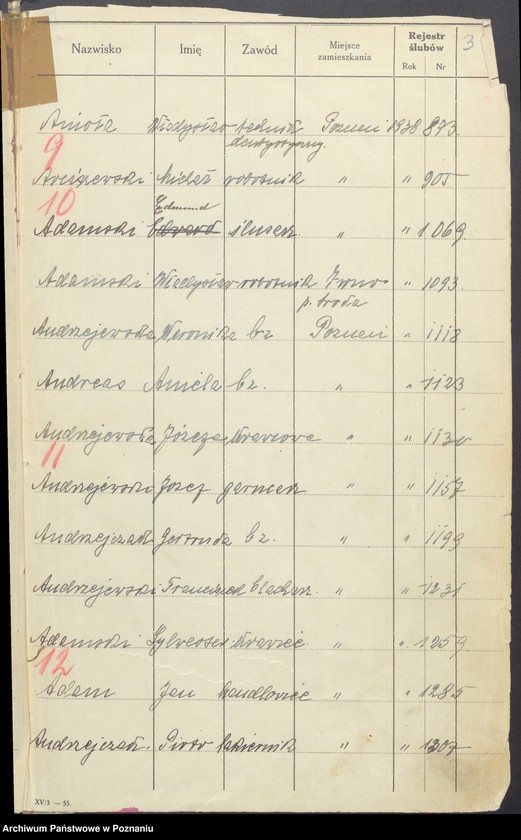 3
Nazwisko Imię Zawód Miejsce zamieszkania Rejestr ślubów
Rok Nr
Anioła Władysław technik Poznań 1938 893.
dentystyczny.
9
Arciszewski Michał robotnik " " 905
10 Edmund
Adamski Edward ślusarz " " 1069.
Adamski Władysław robotnik " 1093.
p. Środa
Andrzejewska Weronika bz Poznań " 1118
Andreas Aniela bz. " " 1123
Andrzejewska Józefa krawcowa " " 1130
11
Andrzejewski Józef garncarz " " 1157
Andrzejczak Gertruda bz. " " 1199
Andrzejewski Franciszek blacharz. " " 1231
Adamski Sylwester krawiec " " 1259
12
Adam Jan handlowiec " " 1285
Andrzejczak. Piotr " " 1307
XV/3 — 55.
Archiwum Państwowe w Poznaniu